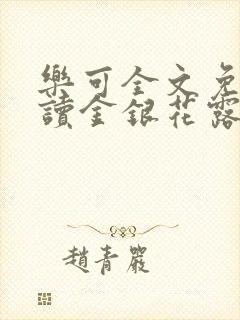 樂可全文免
讀金銀花露
趙青嚴